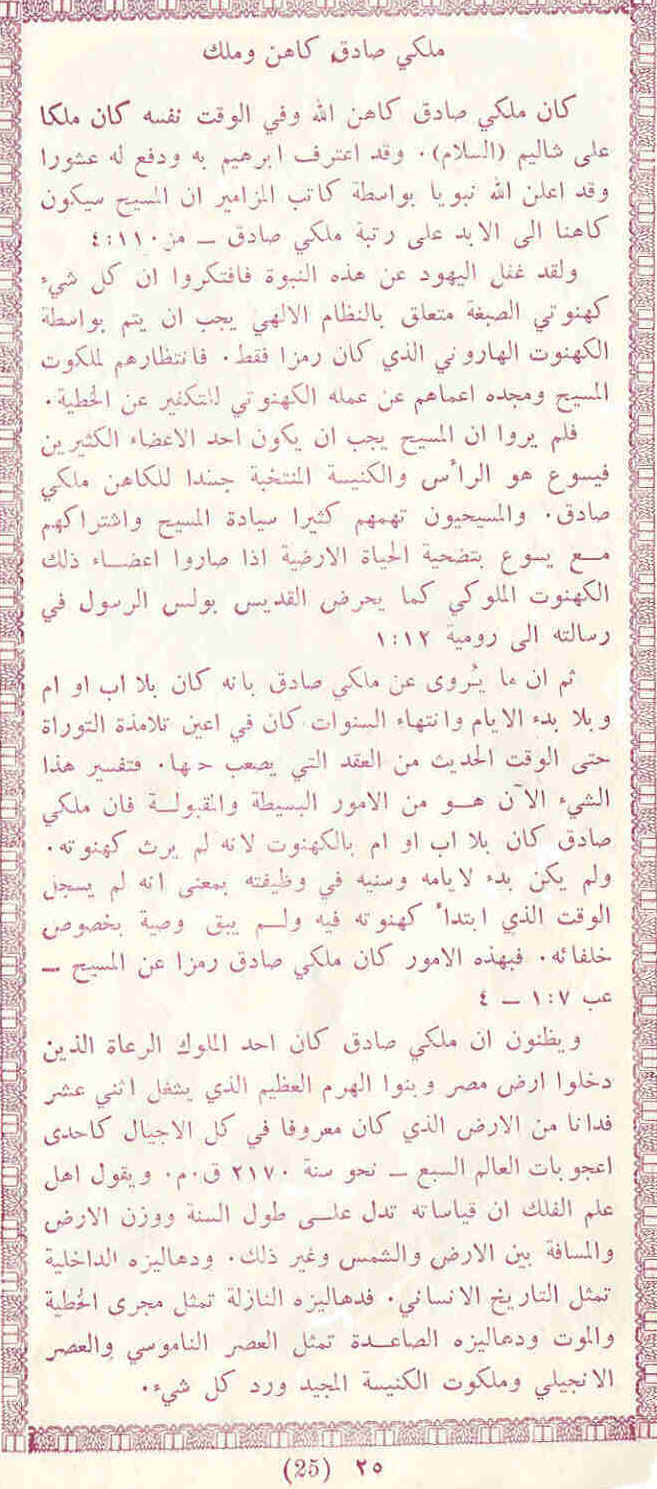 ملكي صادق كاهن وملك
كان ملكي صادق كاهن الله وفي الوقت نفسه كان ملكا
على شاليم (السلام)٠ وقد اعترف ابرهيم به ودفع له عشورا
وقد اعلن الله نبويا بواسطة كاتب المزامير ان المسيح سيكون
كاهنا الى الابد على رتبة ملكي صادق — مز ١١٠:٤
ولقد غفل اليهود عن هذه النبوة فافتكروا ان كل شيء
كهنوتي الصبغة متعلق بالنظام الالهي يجب ان يتم بواسطة
الكهنوت الهاروني الذي كان رمزا فقط٠ فانتظارهم لملكوت
المسيح ومجده اعماهم عن عمله الكهنوتي للتكفير عن الخطية٠
فلم يروا ان المسيح يجب ان يكون احد الاعضاء الكثيرين
فيسوع هو الرأس والكنيسة المنتخبة جسدا للكاهن ملكي
صادق٠ والمسيحيون تهمهم كثيرا سيادة المسيح واشتراكهم
مع يسوع بتضحية الحياة الارضية اذا صاروا اعضاء ذلك
الكهنوت الملوكي كما يحرض القديس بولس الرسول في
رسالته الى رومية ١:١٢
ثم ان ما يُروى عن ملكي صادق بانه كان بلا اب او ام
وبلا بدء الايام وانتهاء السنوات كان في اعين تلامذة التوراة
حتى الوقت الحديث من العقد التي يصعب حلها٠ فتفسير هذا
الشيء الآن هو من الامور البسيطة والمقبولة فان ملكي
صادق كان بلا اب او ام بالكهنوت لانه لم يرث كهنوته٠
ولم يكن بدء لايامه وسنيه في وظيفته بمعنى انه لم يسجل
الوقت الذي ابتدأ كهنوته فيه ولم يبق وصية بخصوص
خلفائه٠ فبهذه الامور كان ملكي صادق رمزا عن المسيح —
عب ٧:١ — ٤
ويظنون ان ملكي صادق كان احد الملوك الرعاة الذين
دخلوا ارض مصر وبنوا الهرم العظيم الذي يشغل اثني عشر
فدانا من الارض الذي كان معروفا في كل الاجيال كاحدى
اعجوبات العالم السبع — نحو سنة ٢١٧٠ ق٠م٠ ويقول اهل
علم الفلك ان قياساته تدل على طول السنة ووزن الارض
والمسافة بين الارض والشمس وغير ذلك٠ ودهاليزه الداخلية
تمثل التاريخ الانساني٠ فدهاليزه النازلة تمثل مجرى الخطية
والموت ودهاليزه الصاعدة تمثل العصر الناموسي والعصر
الانجيلي وملكوت الكنيسة المجيد ورد كل شيء٠
٢٥ (25)